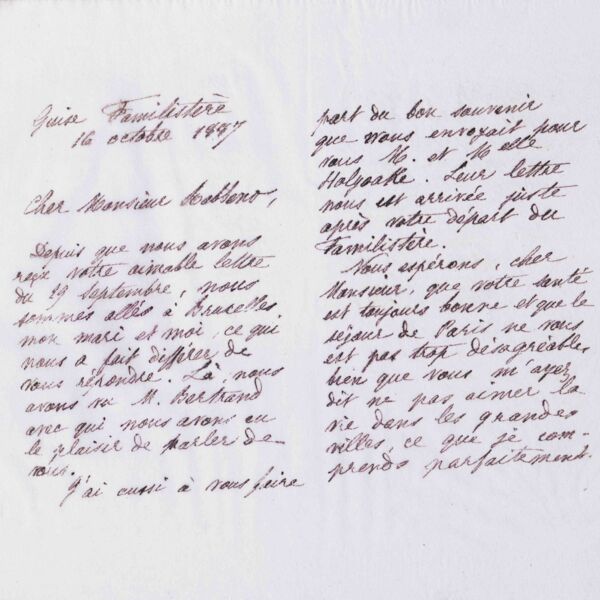 Guise Familistère
16 octobre 1887
Cher Monsieur Rabbeno,
Depuis que nous avons
reçu votre aimable lettre
du 29 Septembre, nous
sommes allés à Bruxelles
mon mari et moi, ce qui
nous a fait différer de
vous répondre. Là, nous
avons vu M. Bertrand
avec qui nous avons eu
le plaisir de parler de
vous.
J'ai aussi à vous faire
part du bon souvenir
que nous envoyait pour
vous M. et Melle
Holyoake. Leur lettre
nous est arrivée juste
après votre départ du
Familistère.
Nous espérons, cher
Monsieur, que votre santé
est toujours bonne et que le
séjour de Paris ne vous
est pas trop désagréable,
bien que vous m'ayez
dit ne pas aimer la
vie dans les grandes
villes, ce que je com-
prends parfaitement.